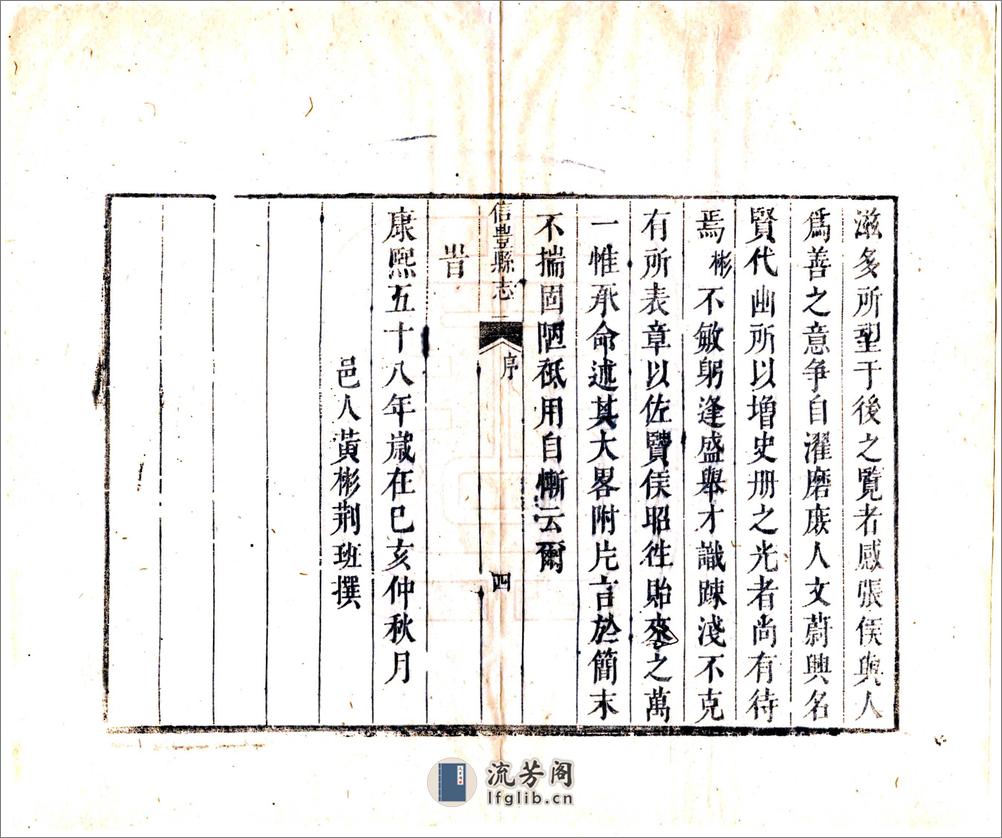 滋多所型于後之覽者感張侯與人
爲善之意爭自濯磨庻人文蔚興名
賢代出所以增史册之光者尚有待
焉彬不敏躬逢盛舉才識踈淺不克
有所表章以佐賢侯昭徃貽來之萬
一惟承命述其大畧附片言於簡末
不揣固陋秪用自慚云爾
信豊縣志
序
四
旹
康熙五十八年嵗在已亥仲秋月
邑人黃彬荆班撰
流芳阁
lfglib.cn